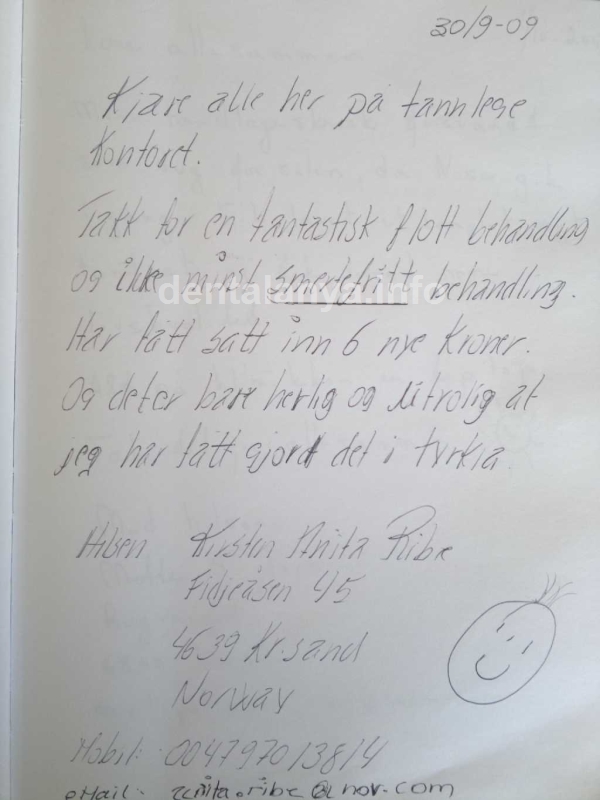 30/9-09
Kjære alle her på tannlege
Kontoret.
Takk for en fantastisk flott behandling
og ikke minst smertefritt behandling.
dentalanya.info
Har fått satt inn 6 nye Kroner.
Og det er bare herlig og utrolig at
jeg har fått gjort det i tyrkia
Hilsen Kirsten Anita Ribe
Fidjeåsen 45
4639 Kr.sand
Norway
Mobil: 004797013814
eMail: anita.ribe@nov.com